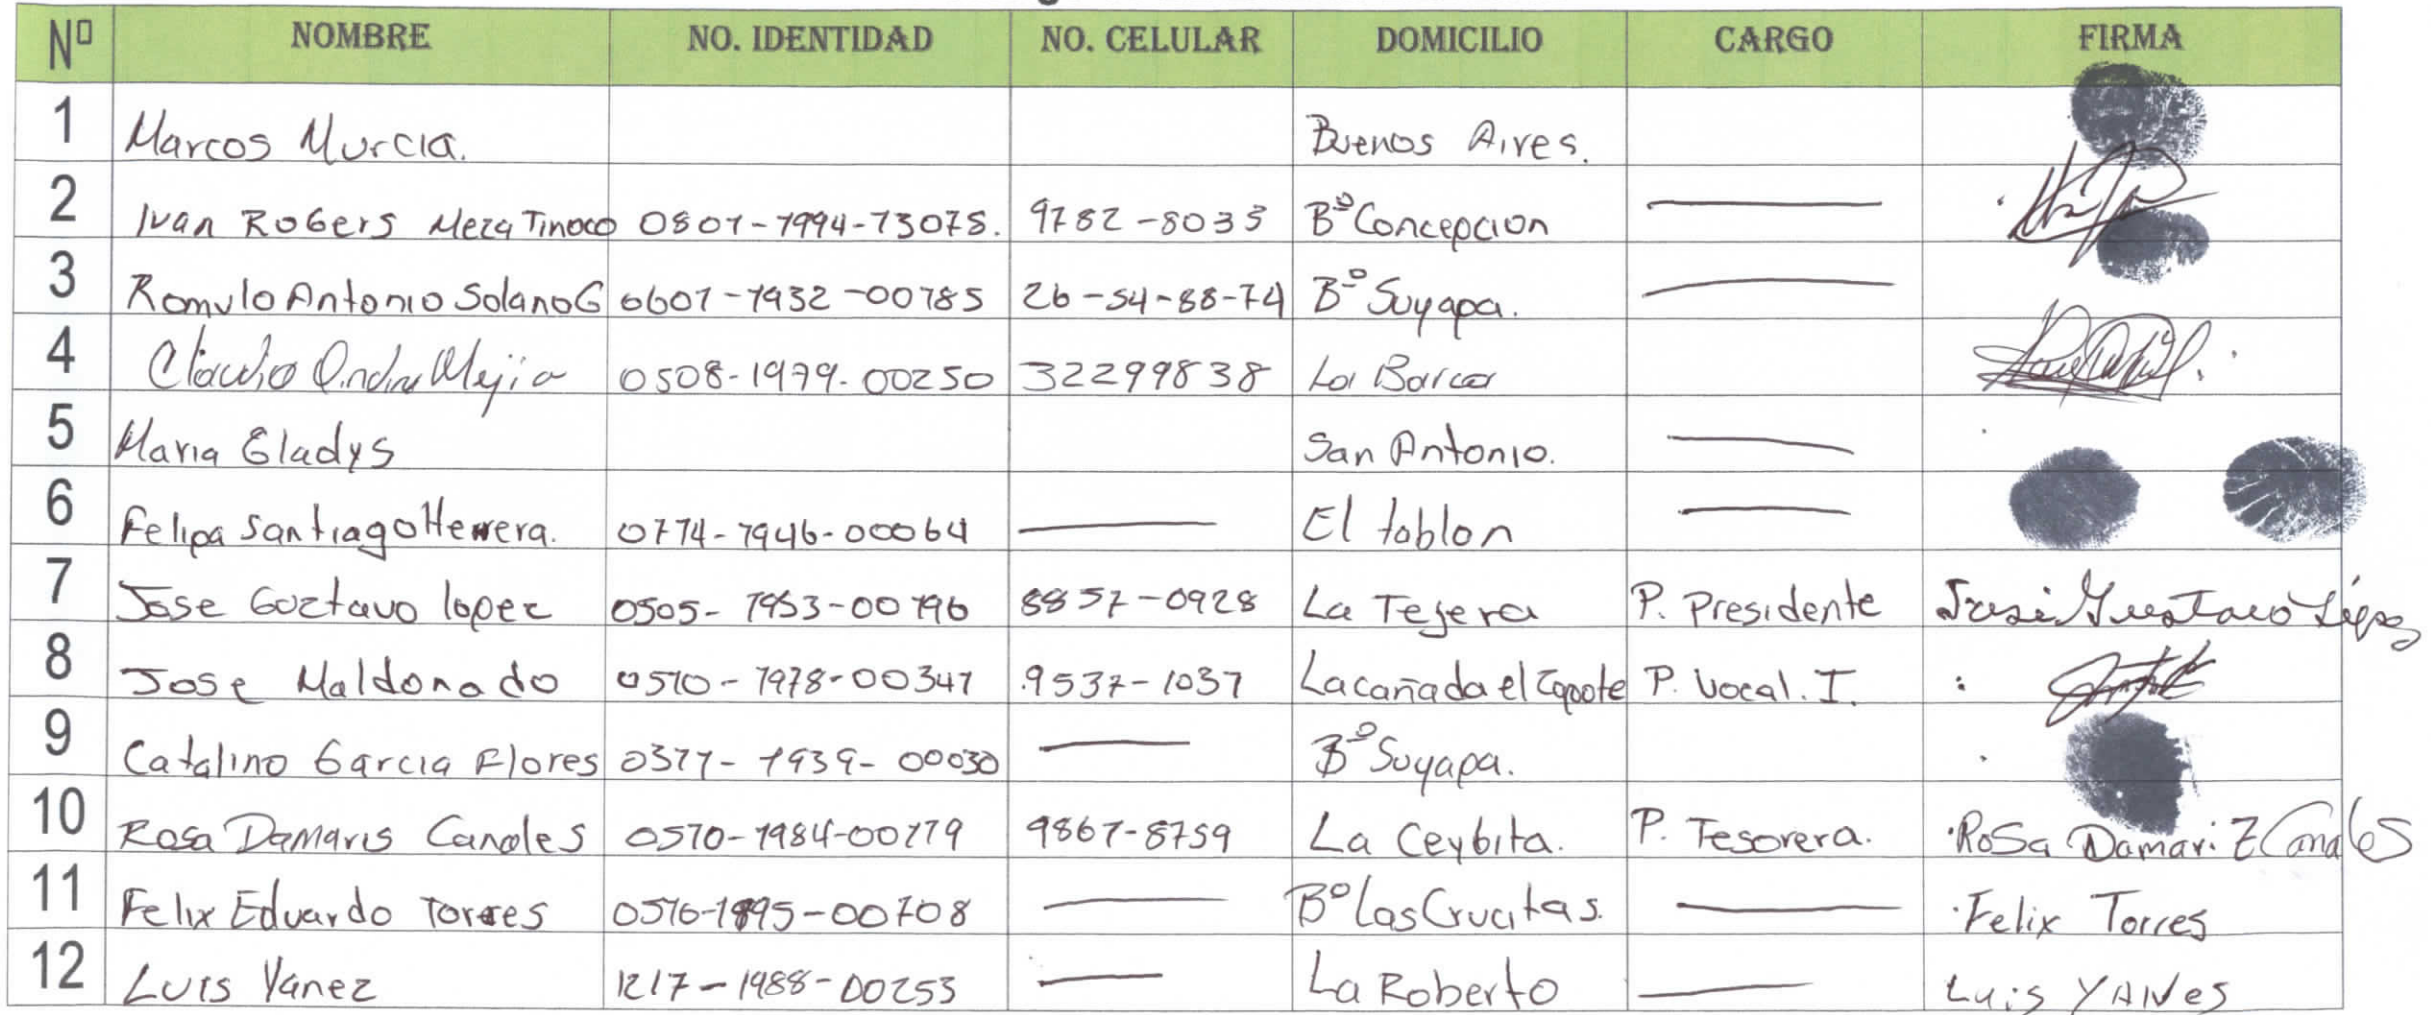 Nº NOMBRE NO. IDENTIDAD NO. CELULAR DOMICILIO CARGO FIRMA
1 Marcos Murcia. Buenos Aires.
2 Ivan Rogers Meza Tinoco 0801-1994-13075. 9782-8033 Bº Concepcion
3 Romulo Antonio Solano G 0601-1932-00185 26-54-88-74 Bº Suyapa.
4 Claudio Mejia 0508-1979-00250 32299838 La Barca
5 Maria Gladys San Antonio.
6 Felipa Santiago Herrera. 0714-1946-00064 El tablon
7 Jose Goztavo lopez 0505-1953-00196 8857-0928 La Tejera P. Presidente José Gustavo López
8 Jose Maldonado 0510-1978-00347 9537-1037 La cañada el Zapote P. Vocal. I.
9 Catalino Garcia Flores 0311-1939-00030 Bº Suyapa.
10 Rosa Damaris Canales 0510-1984-00119 9867-8759 La Ceybita. P. Tesorera. Rosa Damariz Canales
11 Felix Eduardo Torres 0516-1995-00108 Bº Las Crucitas. Felix Torres
12 Luis Yanez 1217-1988-00253 La Roberto Luis YANes